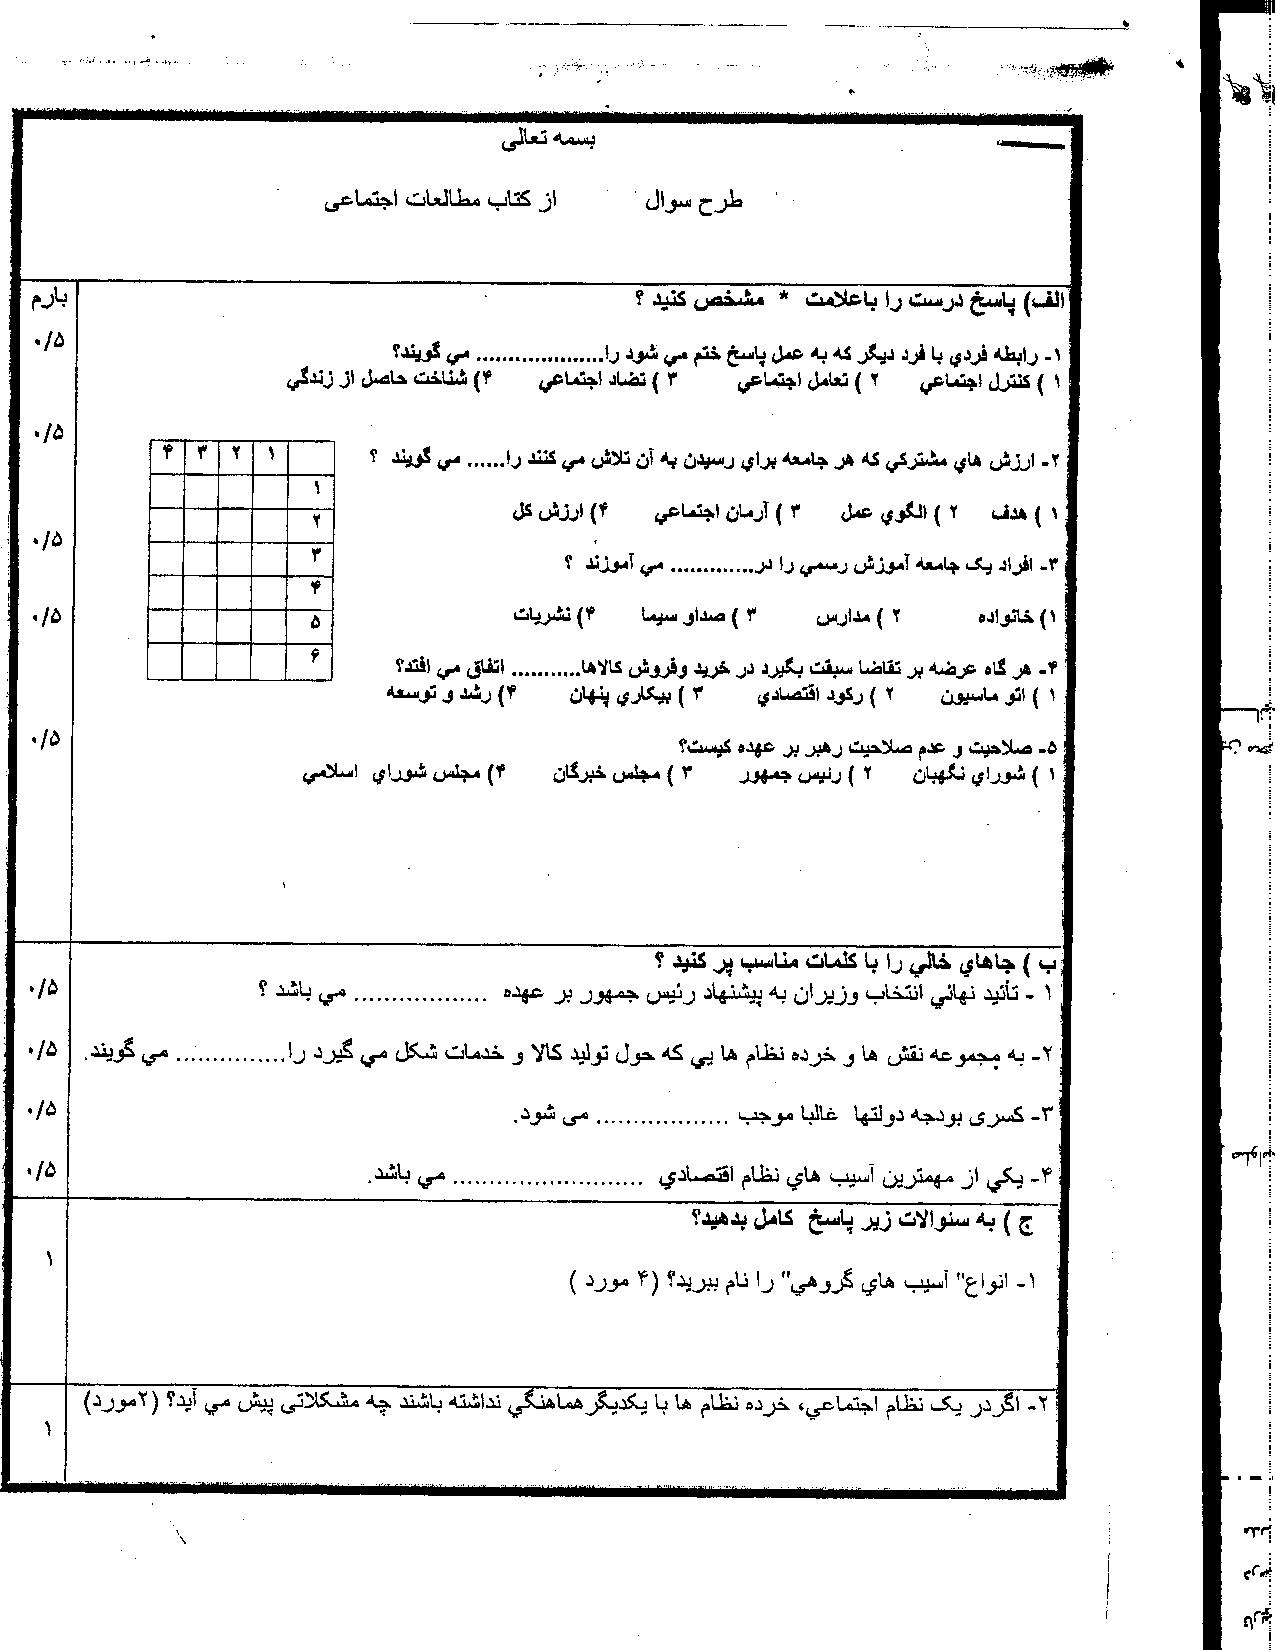 بسمه تعالی
طرح سوال از کتاب مطالعات اجتماعی
بارم
الف) پاسخ درست را باعلامت * مشخص کنید ؟
۰/۵
۱- رابطه فردي با فرد دیگر که به عمل پاسخ ختم مي شود را.................... مي گویند؟
۱ ) کنترل اجتماعي ۲ ) تعامل اجتماعي ۳ ) تضاد اجتماعي ۴) شناخت حاصل از زندگي
۰/۵
۲- ارزش هاي مشترکي که هر جامعه براي رسیدن به آن تلاش مي کنند را...... مي گویند ؟
۱ ) هدف ۲ ) الگوي عمل ۳ ) آرمان اجتماعي ۴) ارزش کل
۰/۵
۳- افراد یک جامعه آموزش رسمي را در............. مي آموزند ؟
۱) خانواده ۲ ) مدارس ۳ ) صداو سیما ۴) نشریات
۰/۵
۴- هر گاه عرضه بر تقاضا سبقت بگیرد در خرید وفروش کالاها........... اتفاق مي افتد؟
۱ ) اتو ماسیون ۲ ) رکود اقتصادي ۳ ) بیکاري پنهان ۴) رشد و توسعه
۰/۵
۵- صلاحیت و عدم صلاحیت رهبر بر عهده کیست؟
۱ ) شوراي نگهبان ۲ ) رئیس جمهور ۳ ) مجلس خبرگان ۴) مجلس شوراي اسلامي
۱ ۲ ۳ ۴
۱
۲
۳
۴
۵
۶
ب ) جاهاي خالي را با کلمات مناسب پر کنید ؟
۰/۵
۱ - تأئید نهائي انتخاب وزیران به پیشنهاد رئیس جمهور بر عهده .................. مي باشد ؟
۰/۵
۲- به مجموعه نقش ها و خرده نظام ها یي که حول تولید کالا و خدمات شکل مي گیرد را............... مي گویند.
۰/۵
۳- کسری بودجه دولتها غالبا موجب .................. می شود.
۰/۵
۴- یکي از مهمترین آسیب هاي نظام اقتصادي .......................... مي باشد.
ج ) به سئوالات زیر پاسخ کامل بدهید؟
۱
۱- انواع" آسیب هاي گروهي" را نام ببرید؟ (۴ مورد )
۲- اگردر یک نظام اجتماعي، خرده نظام ها با یکدیگر هماهنگي نداشته باشند چه مشکلاتی پیش مي آید؟ (۲مورد)
۱